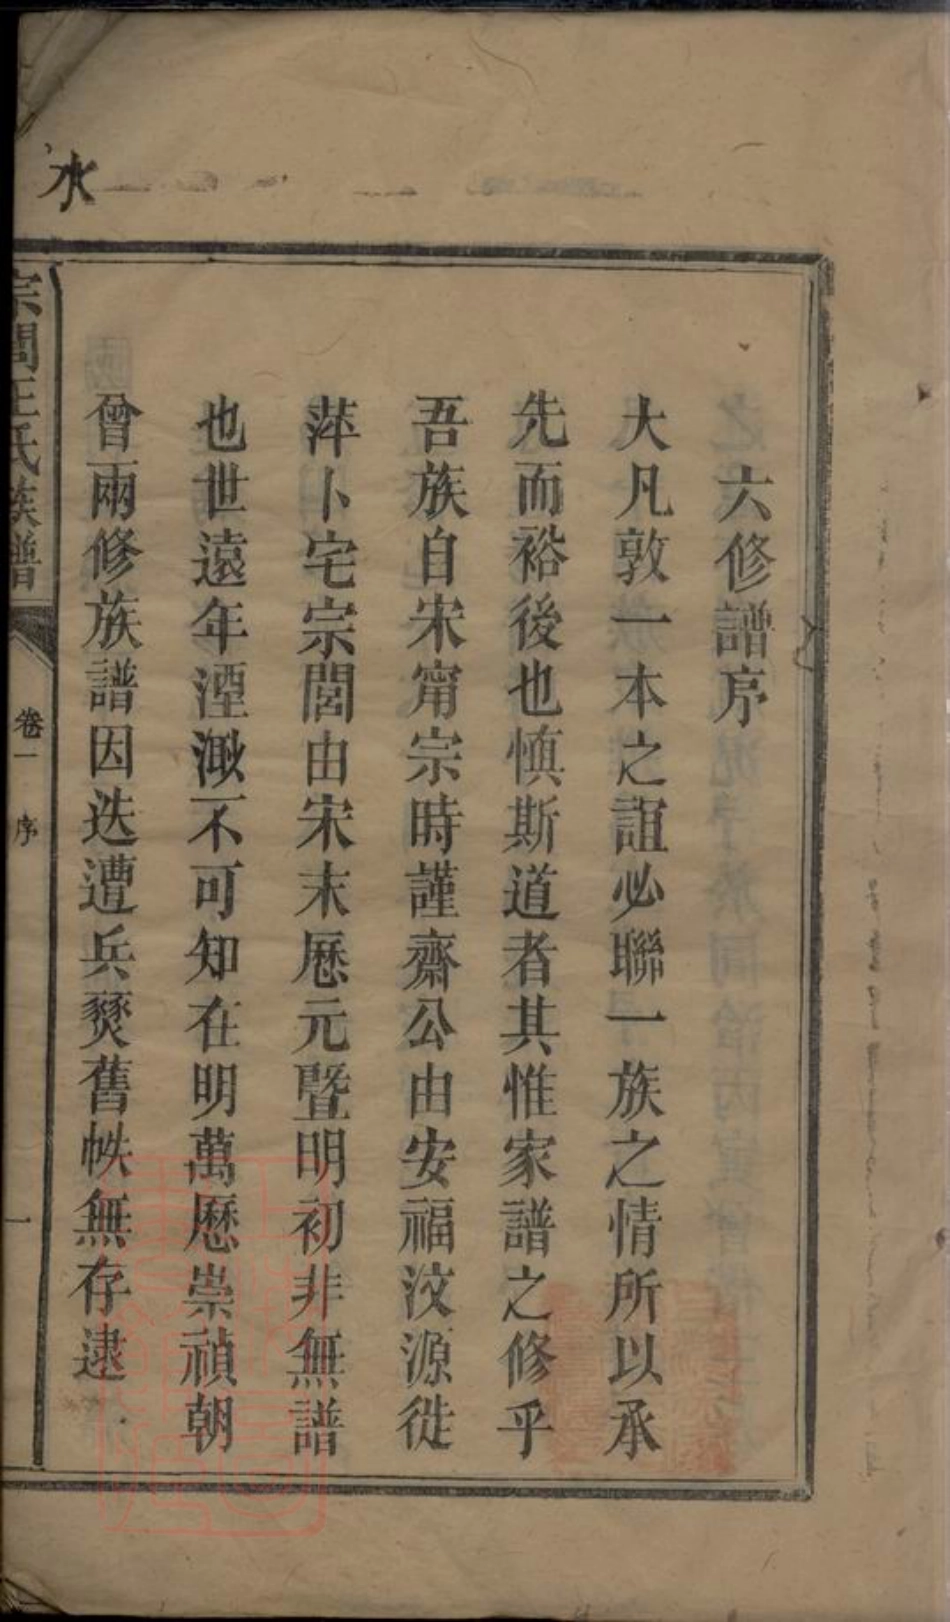 六修譜序
大凡敦一本之誼必聯一族之情所以承
先而裕後也慎斯道者其惟家譜之修乎
吾族自宋甯宗時謹齋公由安福汶源徙
萍卜宅宗閭由宋末歷元暨明初非無譜
也世遠年湮溦不可知在明萬歷崇禎朝
曾兩修族譜因迭遭兵燹舊帙無存逮
宗閭王氏族譜
卷一 序
一
水